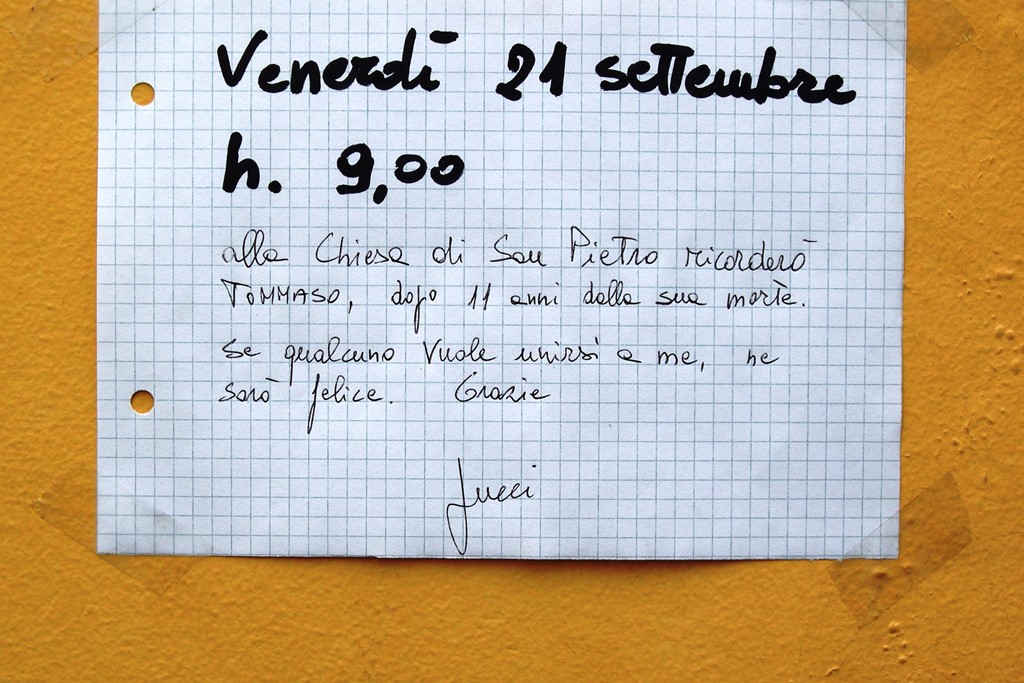 Venerdì 21 settembre
h. 9,00
alla Chiesa di San Pietro ricorderò
TOMMASO, dopo 11 anni dalla sua morte.
Se qualcuno vuole unirsi a me, ne
sarò felice. Grazie